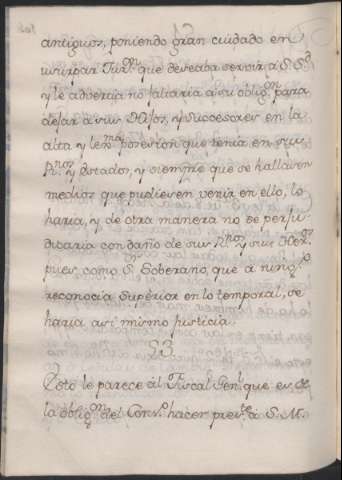 antiguos, poniendo gran cuidado en
usurpar Jur.on que deseaba servir à S. S.d
y le advertia no faltaria à su oblig.on para
dejar à sus Hijos, y Successores en la
alta y lex.ma posesion que tenia en sus
R.nos y Estados, y siempre que se hallasen
medios que pudiesen venir en ello, lo
haria, y de otra manera no se perju-
dicaria con daño de sus R.nos y sus Her.os
pues como S.r Soberano, que à ning.o
reconocia Superior en lo temporal, se
haria asi mismo justicia.
23.
Esto le parece al Fiscal Gen.l que es de
la oblig.on del Cons.o hacer pres.te à S. M.